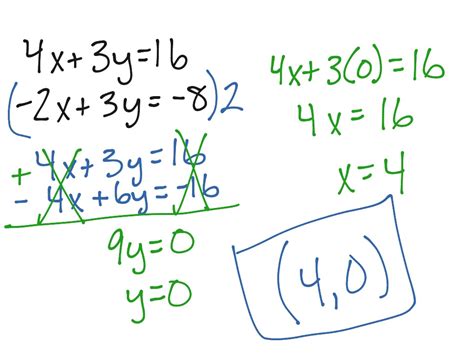 4x+3y=16
(-2x+3y=-8)2
+ 4x+3y=16
- 4x+6y=-16
9y=0
y=0
4x+3(0)=16
4x=16
x=4
(4,0)